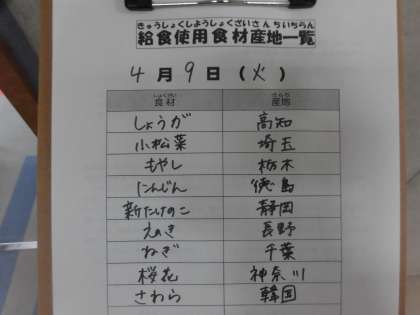 きゅうしょくしようしょくざいさんちいちらん
給食使用食材産地一覧
4月9日(火)
しょくざい さんち
食材 産地
しょうが 高知
小松菜 埼玉
もやし 栃木
にんじん 徳島
新たけのこ 静岡
えのき 長野
ねぎ 千葉
桜花 神奈川
さわら 韓国